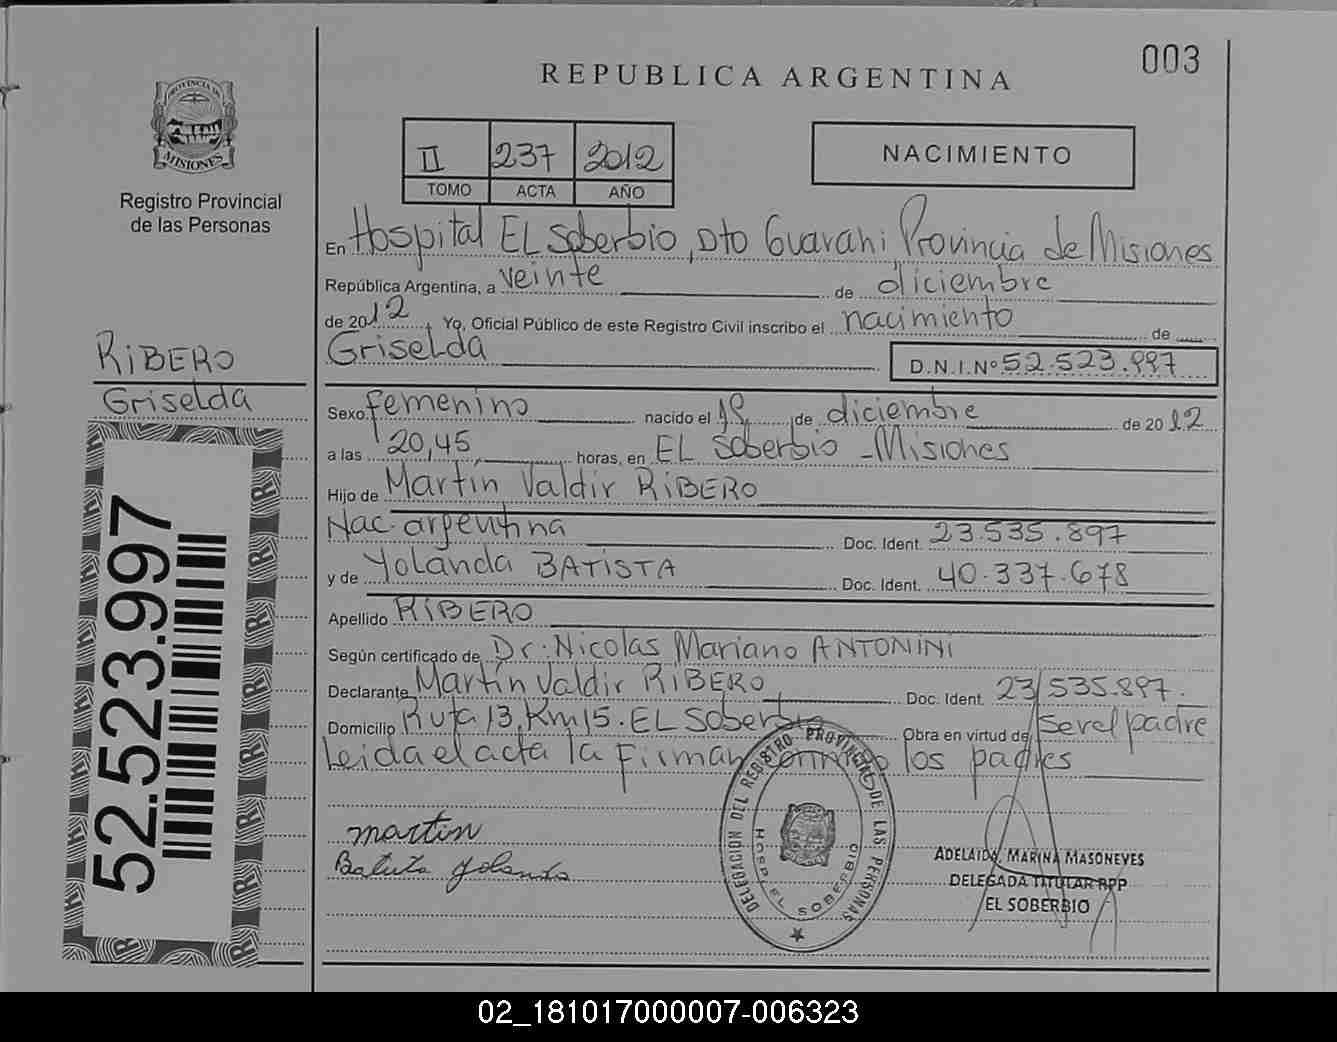 003
REPUBLICA ARGENTINA
PROVINCIA DE
MISIONES
Registro Provincial
de las Personas
II 237 2012
TOMO ACTA AÑO
NACIMIENTO
En Hospital EL Soberbio, Dto Guarani, Provincia de Misiones
República Argentina, a veinte de diciembre
de 2012, Yo, Oficial Público de este Registro Civil inscribo el nacimiento de
Griselda
D.N.I.Nº 52.523.997
RIBERO
Griselda
Sexo femenino nacido el 19 de diciembre de 2012
a las 20,45 horas, en EL Soberbio - Misiones
Hijo de Martin Valdir RIBERO
Nac. argentina Doc. Ident. 23.535.897
y de Yolanda BATISTA Doc. Ident. 40.337.678
Apellido RIBERO
Según certificado de Dr. Nicolas Mariano ANTONINI
Declarante Martín Valdir RIBERO Doc. Ident. 23.535.897.
Domicilio Ruta 13, Km 15. EL Soberbio Obra en virtud de ser el padre
Leida el acta la firman conmigo los padres
martin
Batista Yolanda
DELEGACION DEL REGISTRO PROVINCIAL DE LAS PERSONAS
HOSP. EL SOBERBIO
ADELAIDA MARINA MASONEVES
DELEGADA TITULAR RPP
EL SOBERBIO
52.523.997
02_181017000007-006323